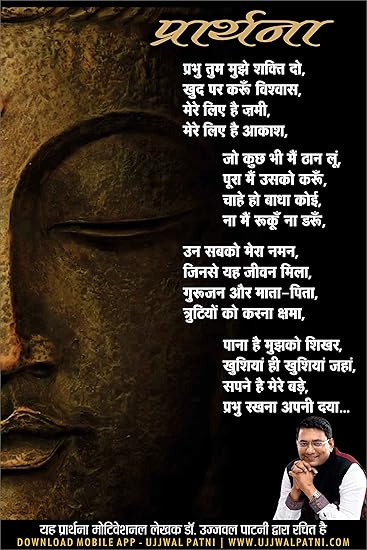 प्रार्थना
प्रभु तुम मुझे शक्ति दो,
खुद पर करूँ विश्वास,
मेरे लिए है ज़मी,
मेरे लिए है आकाश,
जो कुछ भी मैं ठान लूं,
पूरा मैं उसको करूँ,
चाहे हो बाधा कोई,
ना मैं रूकूँ ना डरूँ,
उन सबको मेरा नमन,
जिनसे यह जीवन मिला,
गुरूजन और माता-पिता,
त्रुटियों को करना क्षमा,
पाना है मुझको शिखर,
खुशियां ही खुशियां जहां,
सपने है मेरे बड़े,
प्रभु रखना अपनी दया...
यह प्रार्थना मोटिवेशनल लेखक डॉ. उज्जवल पाटनी द्वारा रचित है
DOWNLOAD MOBILE APP - UJJWAL PATNI | WWW.UJJWALPATNI.COM